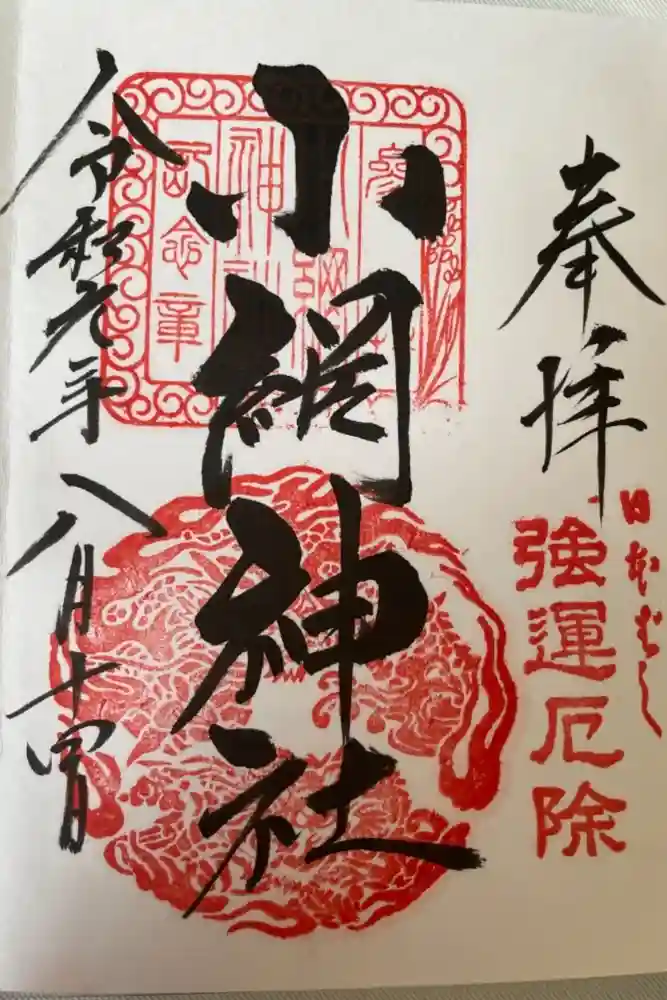 奉拝
日本ばし
強運厄除
小網神社
小網
神社
記念章
令和元年八月十四日